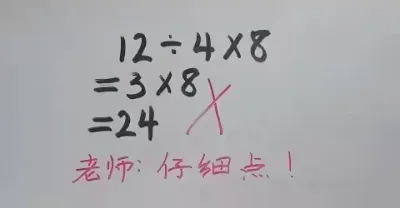 12÷4×8
=3×8
=24
老师: 仔细点!